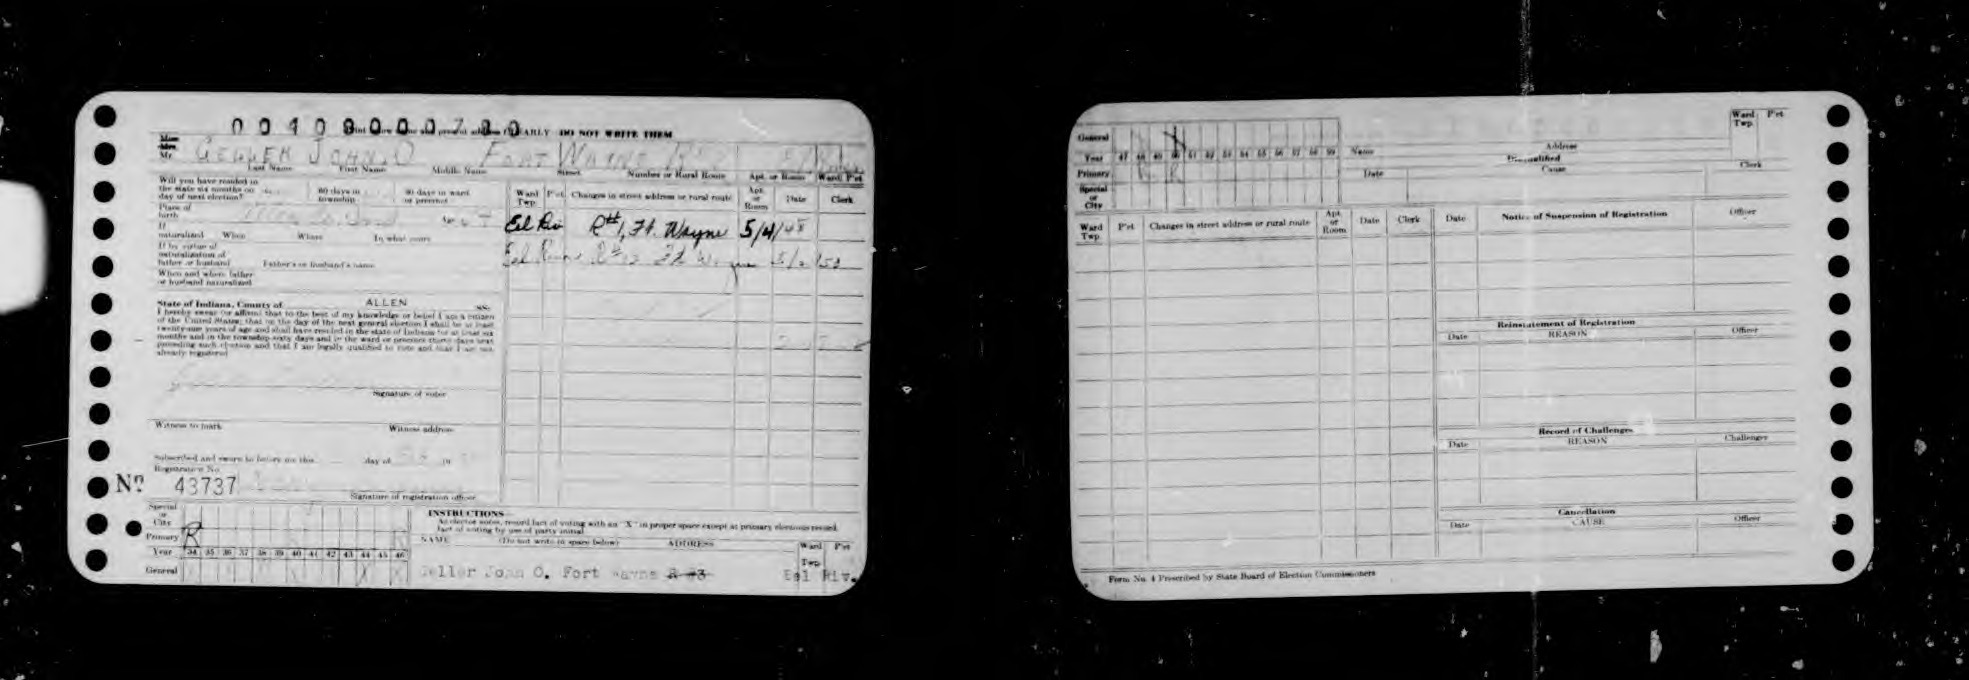 00408000780
CLEARLY DO NOT WRITE THEM
Miss
Mrs.
Mr. GELLER JOHN O FORT WAYNE
Last Name First Name Middle Name Street Number or Rural Route Apt. or Room Ward P'ct
Will you have resided in
the state six months on 60 days in 30 days in ward
day of next election? township or precinct
Place of
birth Age
If
naturalized When Where In what court
If by virtue of
naturalization of
father or husband Father's or husband's name
When and where father
or husband naturalized
State of Indiana, County of ALLEN SS:
I hereby swear (or affirm) that to the best of my knowledge or belief I am a citizen
of the United States; that on the day of the next general election I shall be at least
twenty-one years of age and shall have resided in the state of Indiana for at least six
months and in the township sixty days and in the ward or precinct thirty days next
preceding such election and that I am legally qualified to vote and that I am not
already registered
Signature of voter
Witness to mark Witness address
Subscribed and sworn to before me this day of 19
Registration No.
Nº 43737
Signature of registration officer
Ward Twp. P'ct Changes in street address or rural route Apt. or Room Date Clerk
Eel Riv R#1, Ft. Wayne 5/4/48
Special
or
City
Primary R
Year 34 35 36 37 38 39 40 41 42 43 44 45 46
General X X
INSTRUCTIONS
As elector votes, record fact of voting with an "X" in proper space except at primary elections record
fact of voting by use of party initial
NAME (Do not write in space below) ADDRESS Ward Twp. P'ct
Geller John O. Fort Wayne R #3 Eel Riv.
General
Year 47 48 49 50 51 52 53 54 55 56 57 58 59
Primary R
Special
or
City
Name Address Ward Twp. P'ct
Disqualified
Date Cause Clerk
Ward Twp. P'ct Changes in street address or rural route Apt. or Room Date Clerk
Date Notice of Suspension of Registration Officer
Reinstatement of Registration
Date REASON Officer
Record of Challenges
Date REASON Challenger
Cancellation
Date CAUSE Officer
Form No. 4 Prescribed by State Board of Election Commissioners